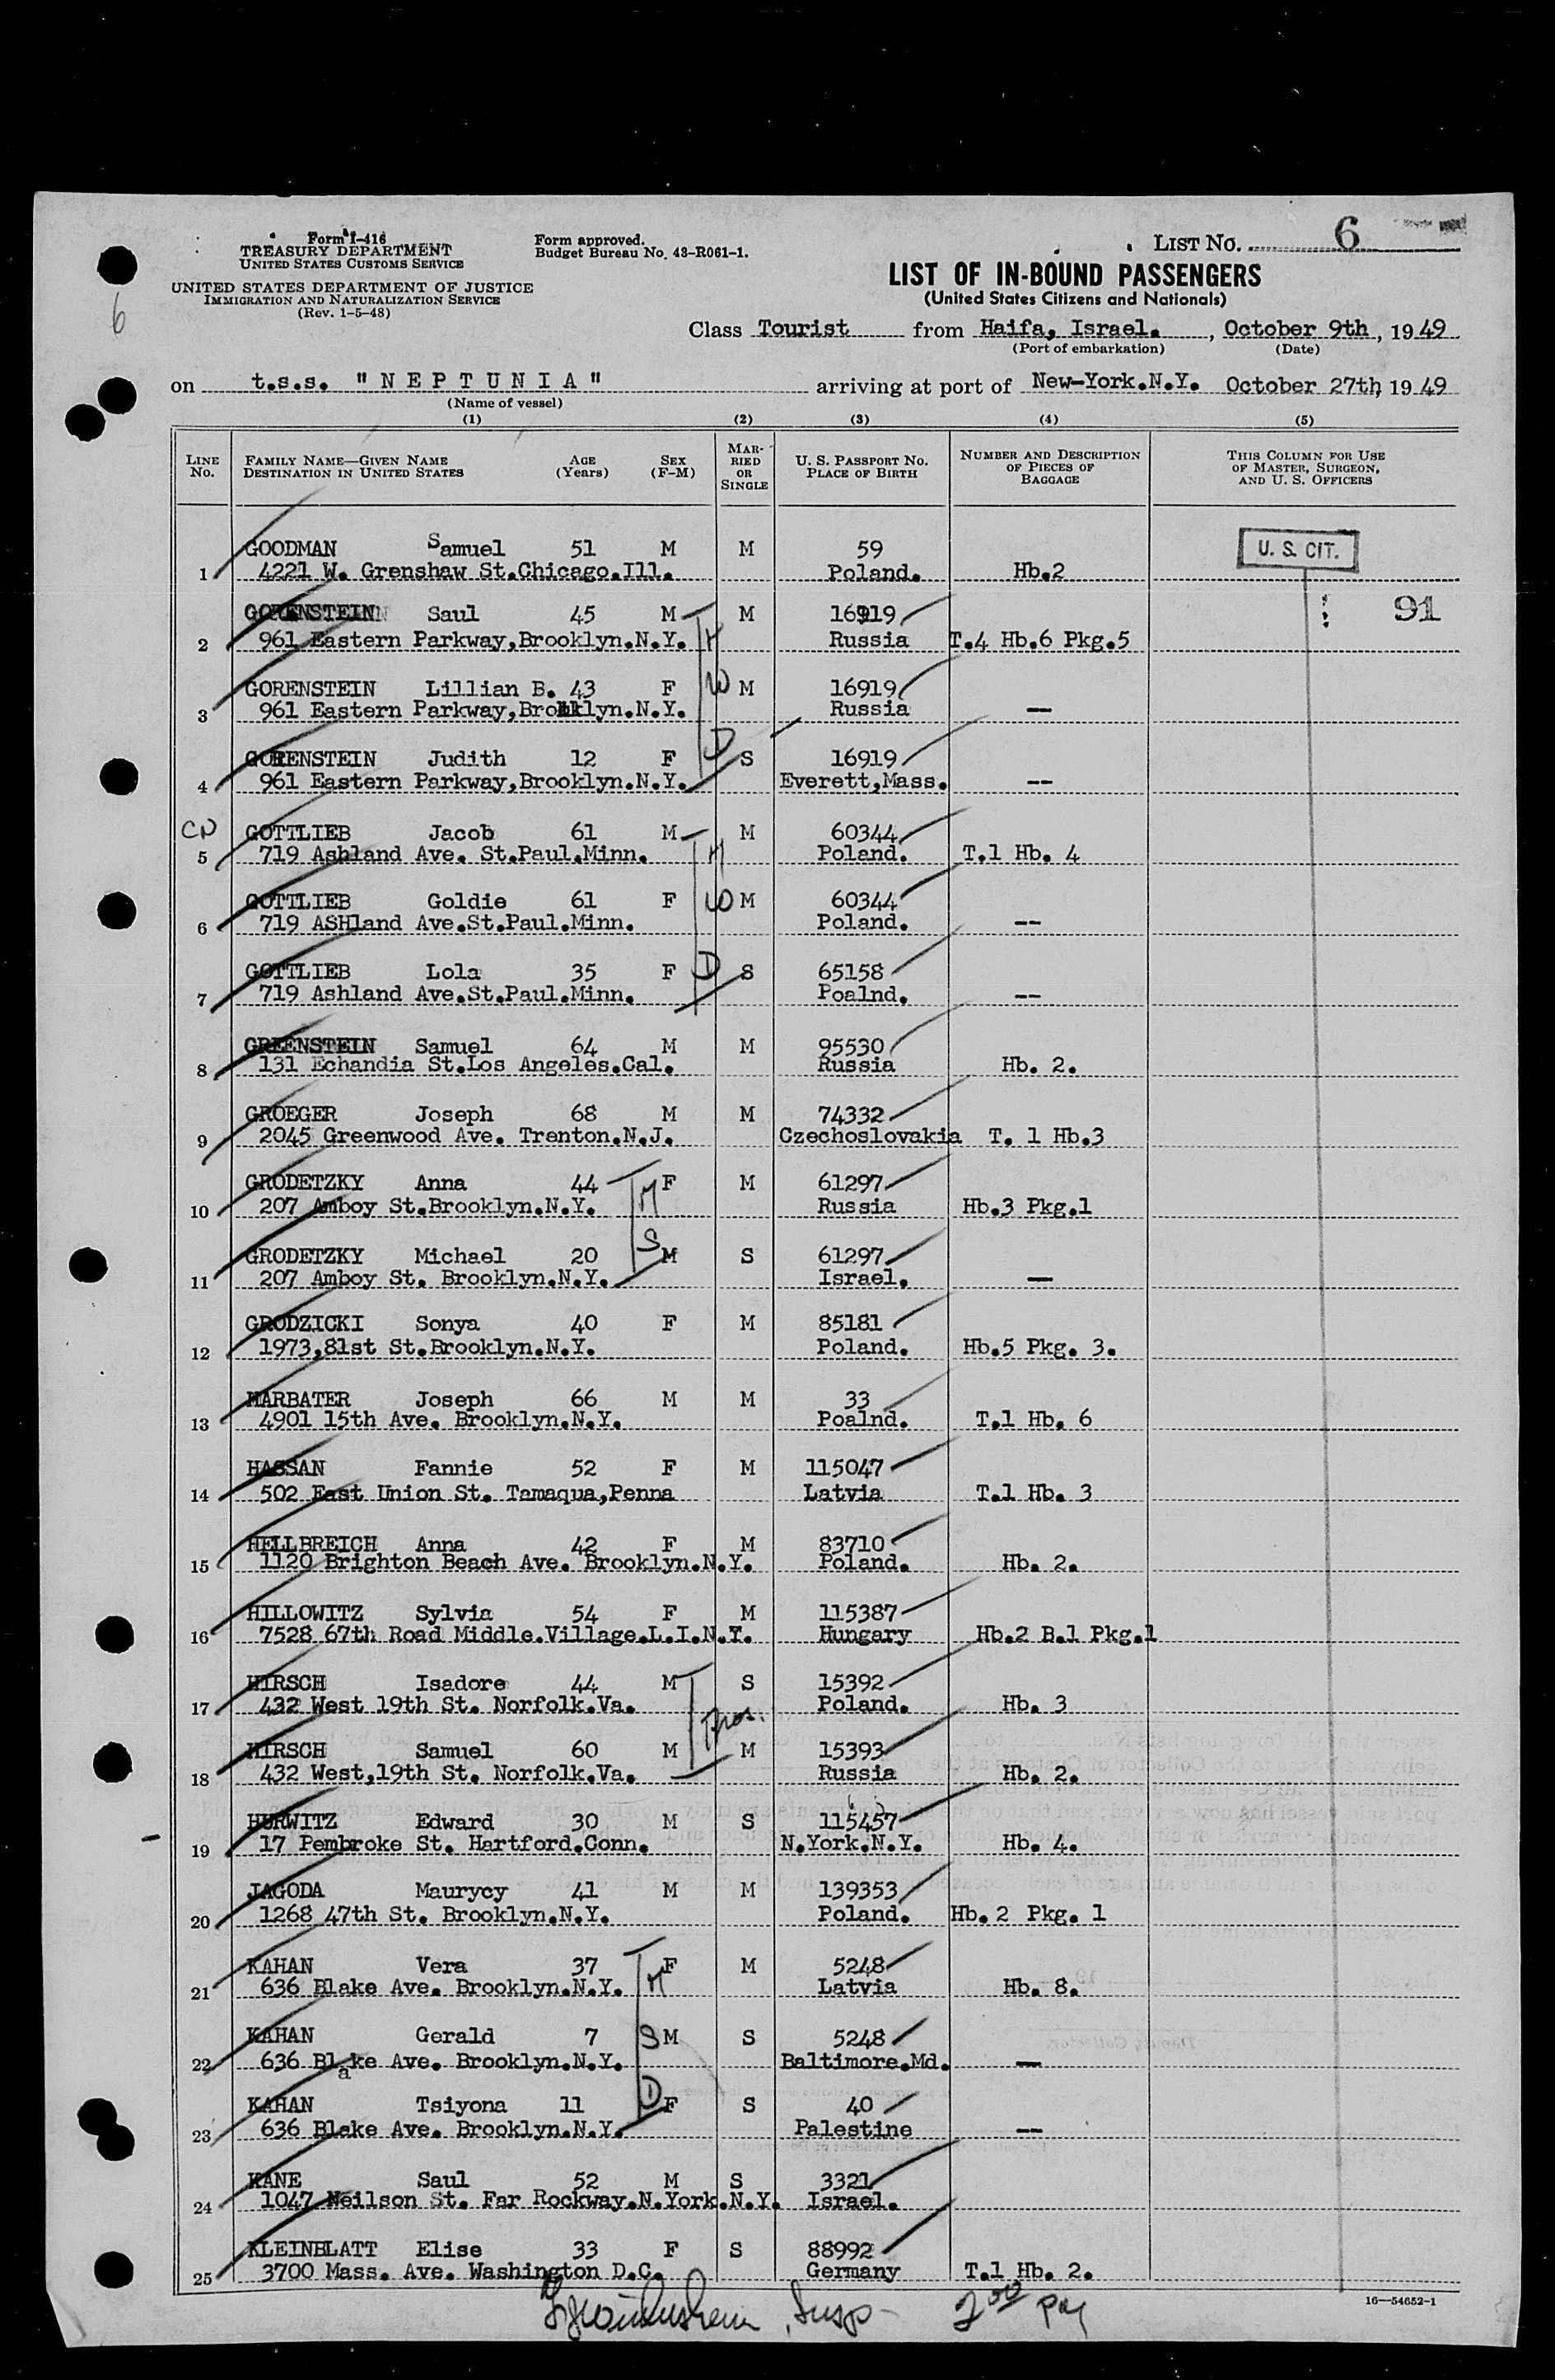 Form I-416
TREASURY DEPARTMENT
UNITED STATES CUSTOMS SERVICE
UNITED STATES DEPARTMENT OF JUSTICE
IMMIGRATION AND NATURALIZATION SERVICE
(Rev. 1-5-48)
Form approved.
Budget Bureau No. 43-R061-1.
LIST No. 6
6
LIST OF IN-BOUND PASSENGERS
(United States Citizens and Nationals)
Class Tourist from Haifa, Israel. , October 9th, 19 49
(Port of embarkation) (Date)
on t.s.s. "NEPTUNIA" arriving at port of New-York.N.Y. October 27th, 19 49
(Name of vessel)
(1) (2) (3) (4) (5)
LINE No. FAMILY NAME—GIVEN NAME DESTINATION IN UNITED STATES AGE (Years) SEX (F-M) MARRIED OR SINGLE U. S. PASSPORT NO. PLACE OF BIRTH NUMBER AND DESCRIPTION OF PIECES OF BAGGAGE THIS COLUMN FOR USE OF MASTER, SURGEON, AND U. S. OFFICERS
GOODMAN Samuel 51 M M 59 U. S. CIT.
1 4221 W. Grenshaw St.Chicago.Ill. Poland. Hb.2
GORENSTEIN Saul 45 M M 16919 91
2 961 Eastern Parkway,Brooklyn.N.Y. H Russia T.4 Hb.6 Pkg.5
GORENSTEIN Lillian B. 43 F W M 16919
3 961 Eastern Parkway,Brooklyn.N.Y. Russia —
GORENSTEIN Judith 12 F D S 16919
4 961 Eastern Parkway,Brooklyn.N.Y. Everett,Mass. --
CN GOTTLIEB Jacob 61 M M 60344
5 719 Ashland Ave. St.Paul.Minn. H Poland. T.1 Hb. 4
GOTTLIEB Goldie 61 F W M 60344
6 719 ASHland Ave.St.Paul.Minn. Poland. --
GOTTLIEB Lola 35 F D S 65158
7 719 Ashland Ave.St.Paul.Minn. Poalnd. --
GREENSTEIN Samuel 64 M M 95530
8 131 Echandia St.Los Angeles.Cal. Russia Hb. 2.
GROEGER Joseph 68 M M 74332
9 2045 Greenwood Ave. Trenton.N.J. Czechoslovakia T. 1 Hb.3
GRODETZKY Anna 44 F M 61297
10 207 Amboy St.Brooklyn.N.Y. M Russia Hb.3 Pkg.1
GRODETZKY Michael 20 S M S 61297
11 207 Amboy St. Brooklyn.N.Y. Israel. —
GRODZICKI Sonya 40 F M 85181
12 1973,81st St.Brooklyn.N.Y. Poland. Hb.5 Pkg. 3.
HARBATER Joseph 66 M M 33
13 4901 15th Ave. Brooklyn.N.Y. Poalnd. T.1 Hb. 6
HASSAN Fannie 52 F M 115047
14 502 East Union St. Tamaqua,Penna Latvia T.1 Hb. 3
HELLBREICH Anna 42 F M 83710
15 1120 Brighton Beach Ave. Brooklyn.N.Y. Poland. Hb. 2.
HILLOWITZ Sylvia 54 F M 115387
16 7528 67th Road Middle.Village.L.I.N.Y. Hungary Hb.2 B.1 Pkg.1
HIRSCH Isadore 44 M S 15392
17 432 West 19th St. Norfolk.Va. Bros. Poland. Hb. 3
HIRSCH Samuel 60 M M 15393
18 432 West,19th St. Norfolk.Va. Russia Hb. 2.
HURWITZ Edward 30 M S 115457
19 17 Pembroke St. Hartford.Conn. N.York.N.Y. Hb. 4.
JAGODA Maurycy 41 M M 139353
20 1268 47th St. Brooklyn.N.Y. Poland. Hb.2 Pkg. 1
KAHAN Vera 37 F M 5248
21 636 Blake Ave. Brooklyn.N.Y. M Latvia Hb. 8.
KAHAN Gerald 7 S M S 5248
22 636 Blake Ave. Brooklyn.N.Y. Baltimore.Md. —
KAHAN Tsiyona 11 D F S 40
23 636 Blake Ave. Brooklyn.N.Y. Palestine --
KANE Saul 52 M S 3321
24 1047 Neilson St. Far Rockway.N.York.N.Y. Israel.
KLEINBLATT Elise 33 F S 88992
25 3700 Mass. Ave. Washington D.C. Germany T.1 Hb. 2.
16—54652-1
Insp- 2